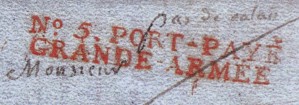 pas de calais
No. 5. PORT-PAYÉ
GRANDE-ARMÉE
Monsieur